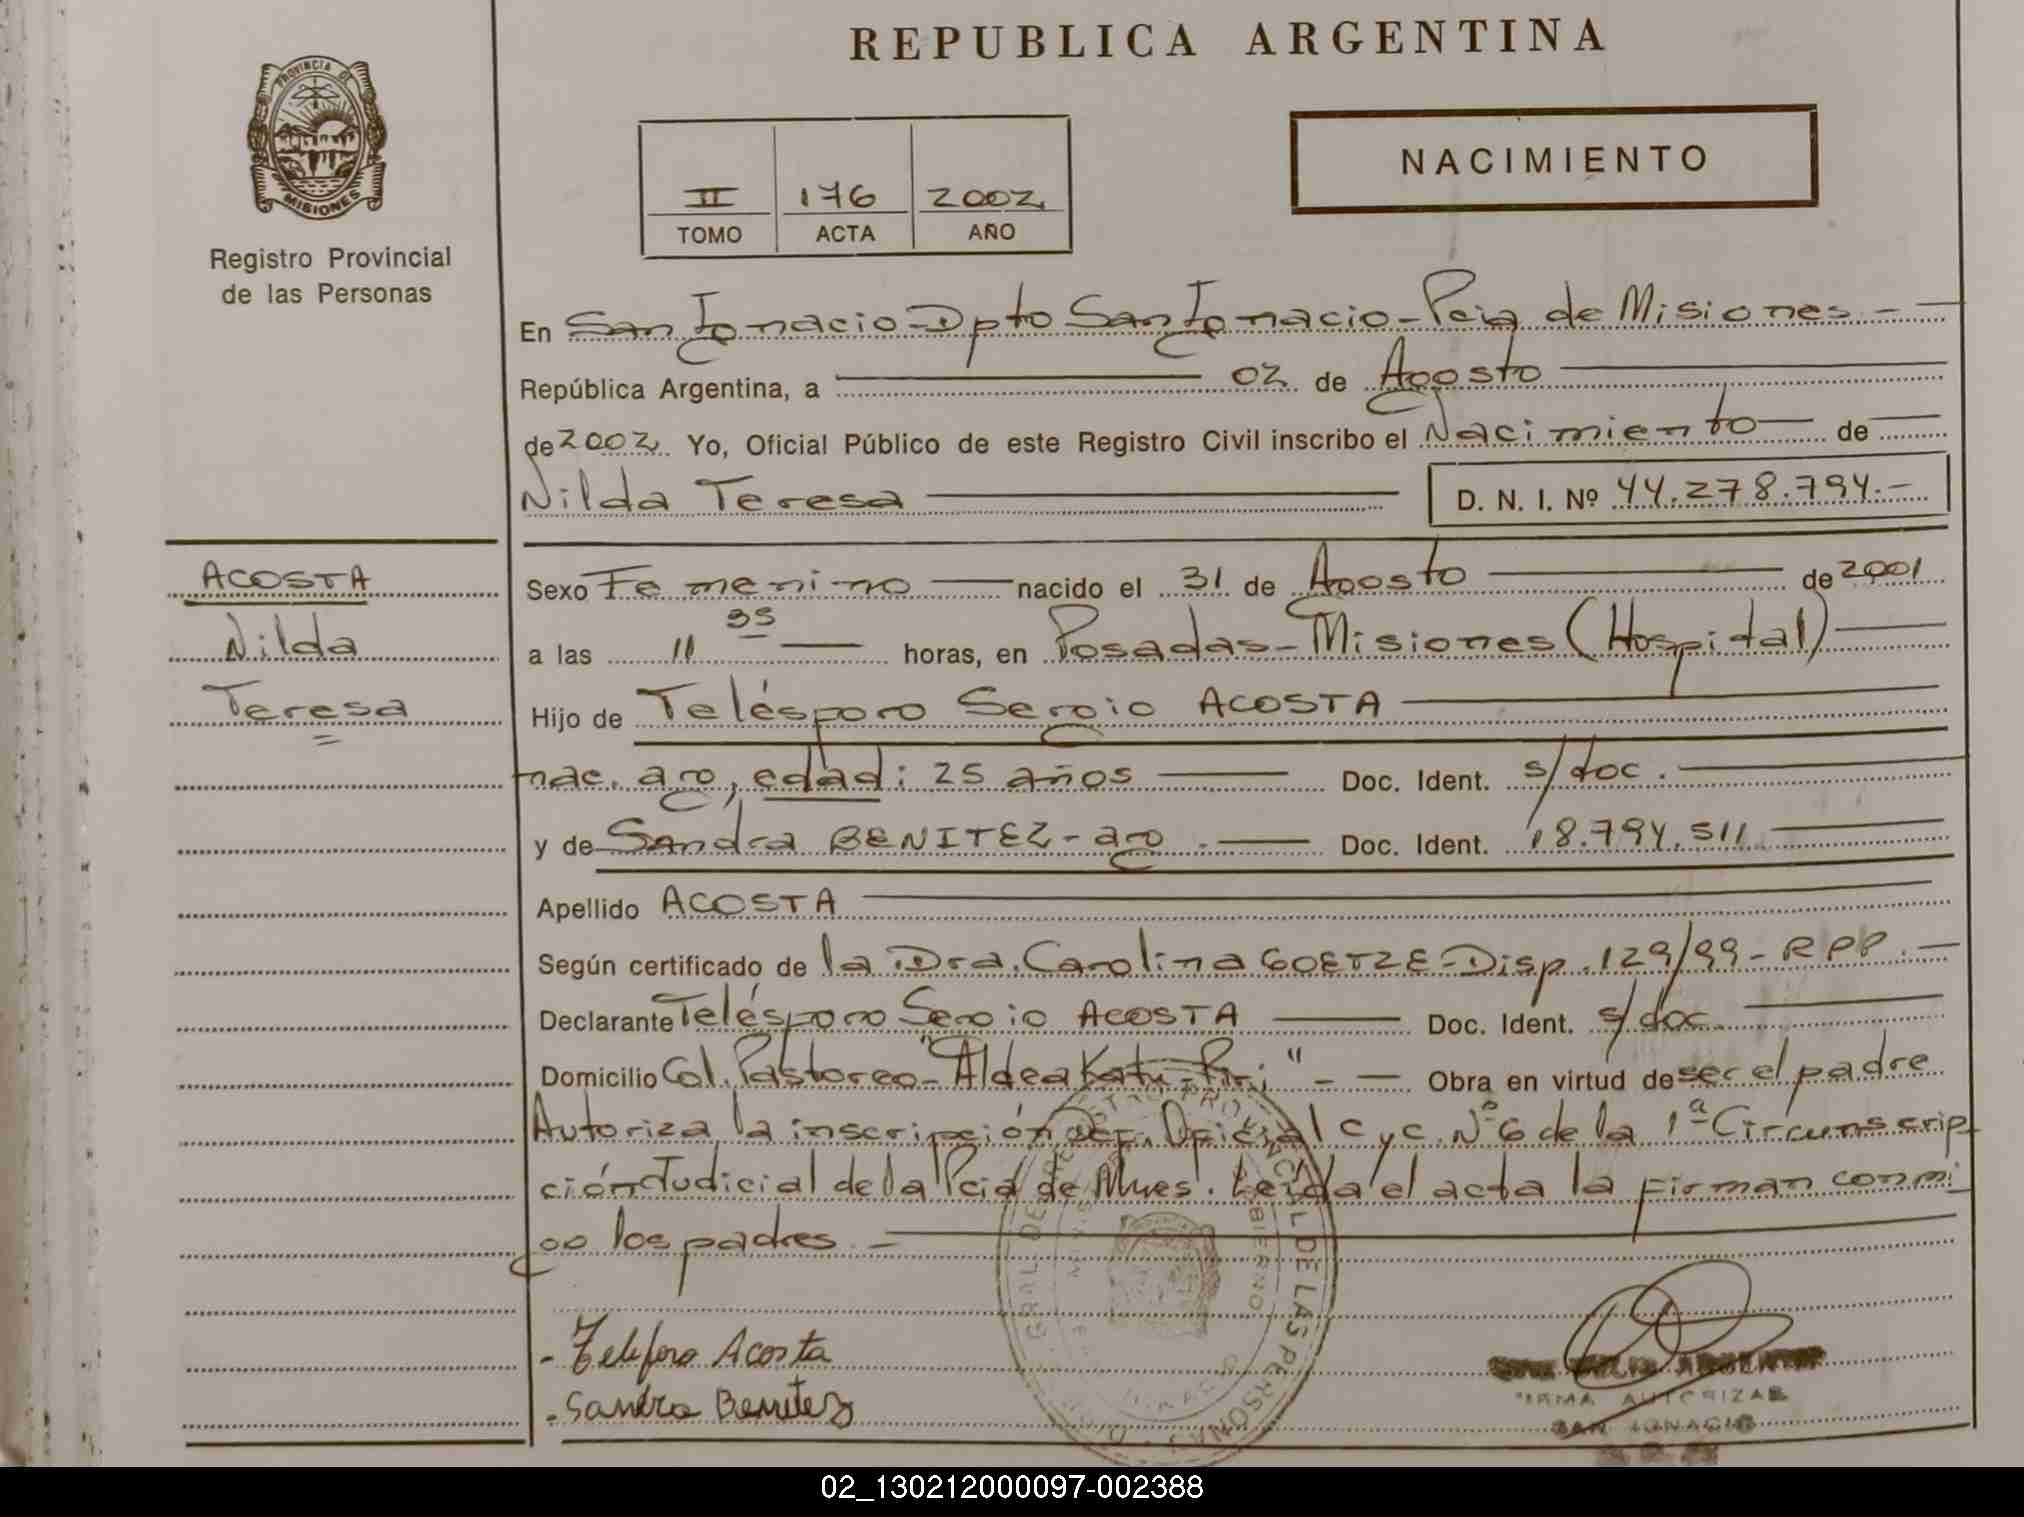 REPUBLICA ARGENTINA
PROVINCIA DE
MISIONES
Registro Provincial
de las Personas
II 176 2002
TOMO ACTA AÑO
NACIMIENTO
En San Ignacio - Dpto San Ignacio - Pcia de Misiones -
República Argentina, a 02 de Agosto
de 2002 Yo, Oficial Público de este Registro Civil inscribo el Nacimiento de
Nilda Teresa D. N. I. Nº 44.278.794.-
ACOSTA
Nilda
Teresa
Sexo Femenino nacido el 31 de Agosto de 2001
a las 11 35 horas, en Posadas - Misiones (Hospital)
Hijo de Telésporo Sergio ACOSTA
nac. arg, edad: 25 años Doc. Ident. s/doc.
y de Sandra BENITEZ - arg. Doc. Ident. 18.794.511
Apellido ACOSTA
Según certificado de la Dra. Carolina GOETZE - Disp. 129/99 - RPP. -
Declarante Telésporo Sergio ACOSTA Doc. Ident. s/doc.
Domicilio Col. Pastoreo - "Aldea Katu - Piri" - Obra en virtud de ser el padre
Autoriza la inscripción Def. Oficial C y C. Nº 6 de la 1ª Circunscrip
ción Judicial de la Pcia de Mnes. Leída el acta la firman conmi
go los padres. -
- Telesforo Acosta
- Sandra Benitez
FIRMA AUTORIZADA
SAN IGNACIO
02_130212000097-002388